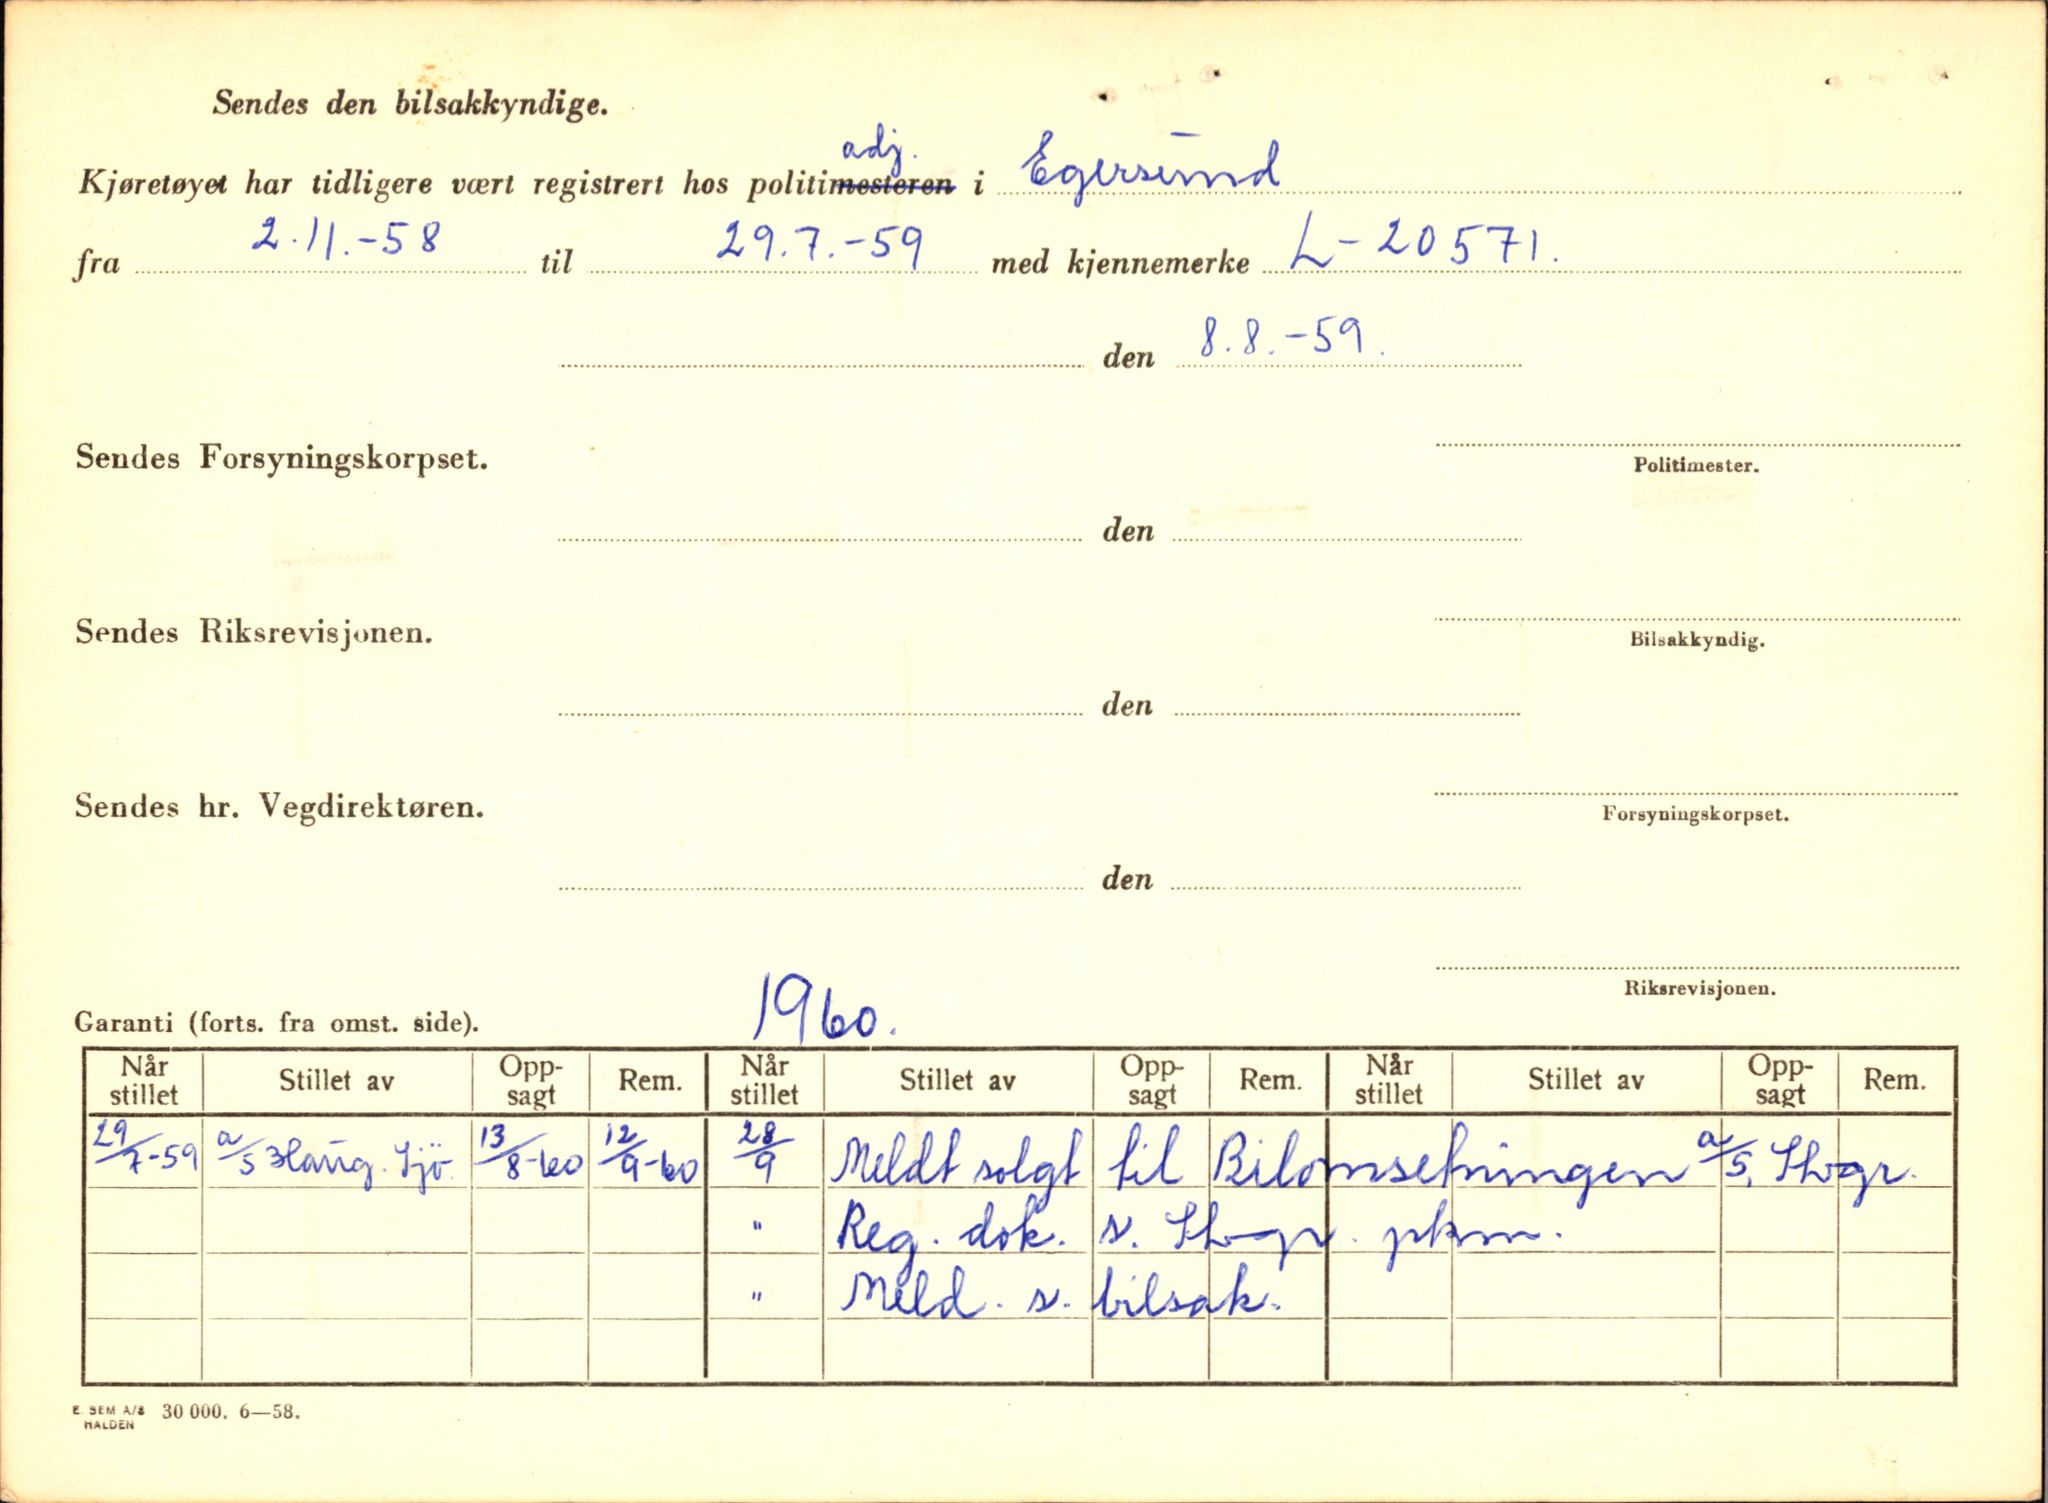 Sendes den bilsakkyndige.
adj.
Kjøretøyet har tidligere vært registrert hos politimesteren i Egersund
fra 2.11.-58 til 29.7.-59 med kjennemerke L-20571.
den 8.8.-59.
Sendes Forsyningskorpset.
Politimester.
den
Sendes Riksrevisjonen.
Bilsakkyndig.
den
Sendes hr. Vegdirektøren.
Forsyningskorpset.
den
Riksrevisjonen.
1960.
Garanti (forts. fra omst. side).
Når stillet Stillet av Opp-sagt Rem. Når stillet Stillet av Opp-sagt Rem. Når stillet Stillet av Opp-sagt Rem.
29/7-59 a/s Haug. Sjö. 13/8-60 12/9-60 28/9 Meldt solgt til Bilomsetningen a/s, Stvgr.
" Reg. dok. s. Stvgr. pkm.
" Meld. s. bilsak.
E. SEM A/S HALDEN 30 000. 6—58.